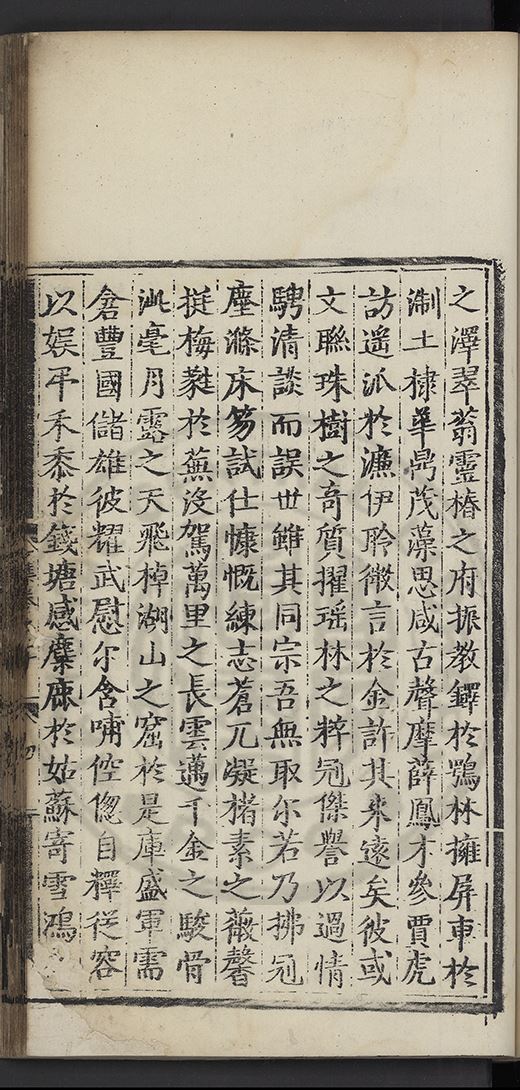 之澤翠蓊靈椿之府振教鐸於鶚林擁屏車於
淛土棣華鼎茂藻思咸古聲摩薛鳳才參賈虎
訪遥派於濂伊聆微言於金許其来遠矣彼或
文聯珠樹之奇質擢瑶林之粹冠傑譽以過情
騁清談而誤世雖其同宗吾無取尔若乃拂冠
塵滌床笏試仕慷慨練志蒼兀凝楮素之薇馨
挺梅蕤於蕪没駕萬里之長雲邁千金之駿骨
泚毫月露之天飛棹湖山之窟於是庫盛軍需
倉豐國儲雄彼耀武慰尔含哺倥偬自釋從容
以娱平禾黍於錢塘感麋鹿於姑蘇寄雪鴻